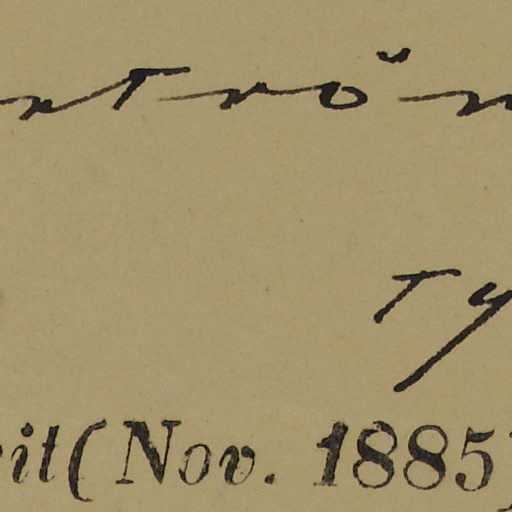 ntröm
Ty
it (Nov. 1885)